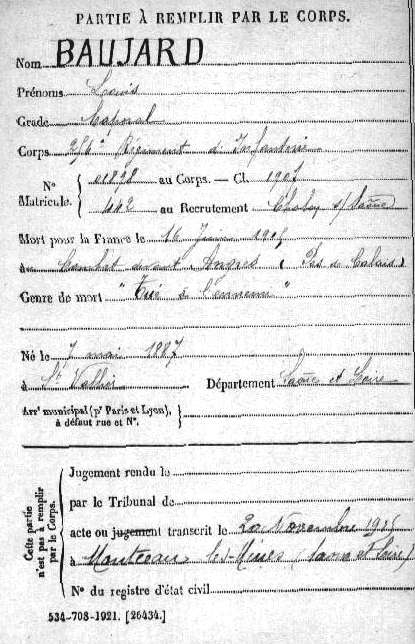 PARTIE À REMPLIR PAR LE CORPS.
Nom BAUJARD
Prénoms Louis
Grade Caporal
Corps 256e Régiment d'Infanterie
N° Matricule. { 01898 au Corps. — Cl. 1907
442 au Recrutement Chalon s/Saône
Mort pour la France le 16 Juin 1915
à Combat devant Angres (Pas de Calais)
Genre de mort "Tué à l'ennemi"
Né le 7 mai 1887
à St Vallier Département Saône et Loire
Arrt municipal (pr Paris et Lyon),
à défaut rue et N°.
Cette partie
n'est pas à remplir
par le Corps.
Jugement rendu le
par le Tribunal de
acte ou jugement transcrit le 20 Novembre 1915
à Montceau les-Mines (Saône et Loire)
N° du registre d'état civil
534-708-1921. [26434.]